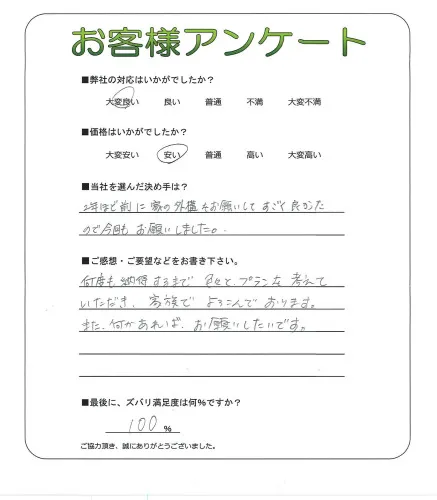 お客様アンケート
■弊社の対応はいかがでしたか？
大変良い 良い 普通 不満 大変不満
■価格はいかがでしたか？
大変安い 安い 普通 高い 大変高い
■当社を選んだ決め手は？
2年ほど前に 家の外構をお願いして すごく良かった
ので今回も お願いしました。
■ご感想・ご要望などをお書き下さい。
何度も 納得するまで 色々と プランを 考えて
いただき、家族で よろこんで おります。
また、何かあれば、お願いしたいです。
■最後に、ズバリ満足度は何%ですか？
100 %
ご協力頂き、誠にありがとうございました。